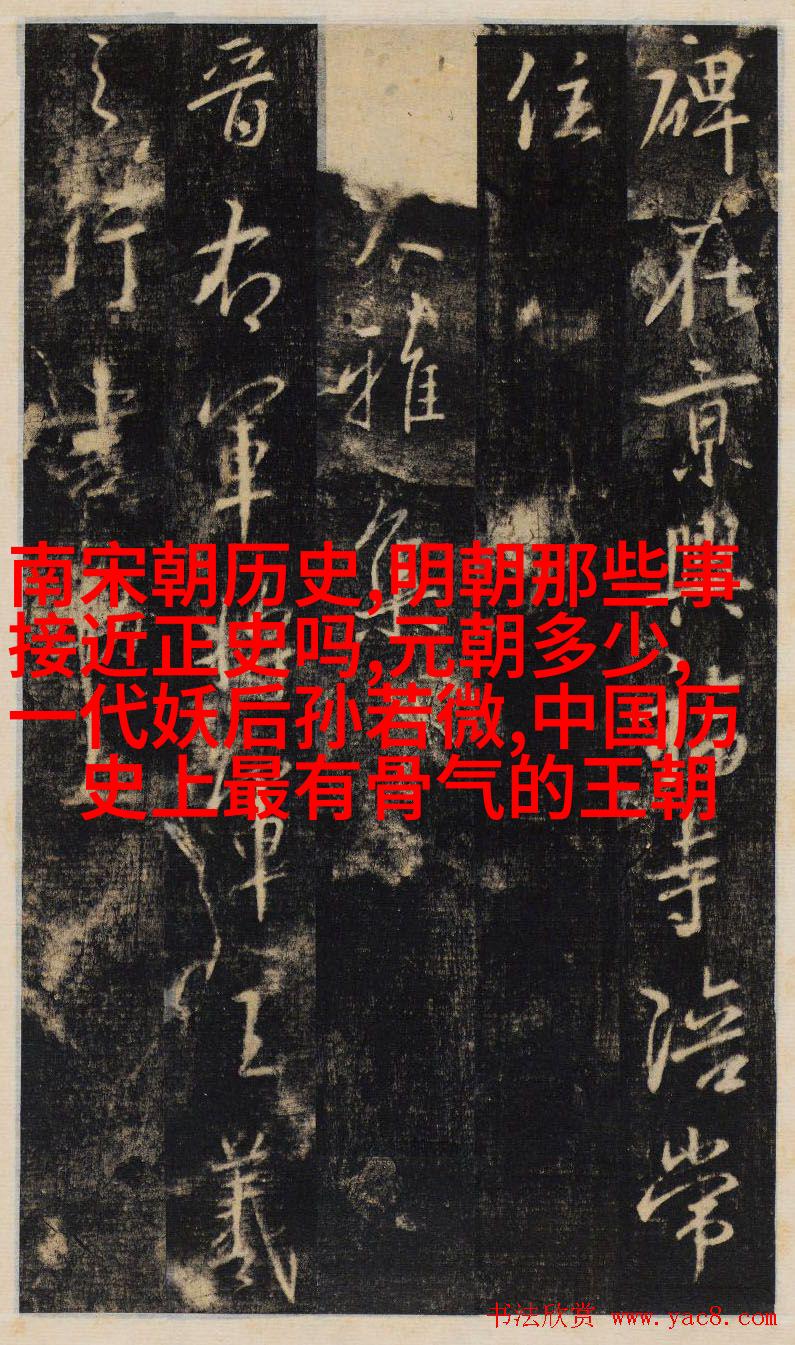 碑在京興福寺陪常
住
雅集
晋右軍將軍王羲
之行書
南宋朝历史,明朝那些事
接近正史吗,元朝多少,
一代妖后孙若微,中国历
史上最有骨气的王朝
书法欣赏 www.yac8.com